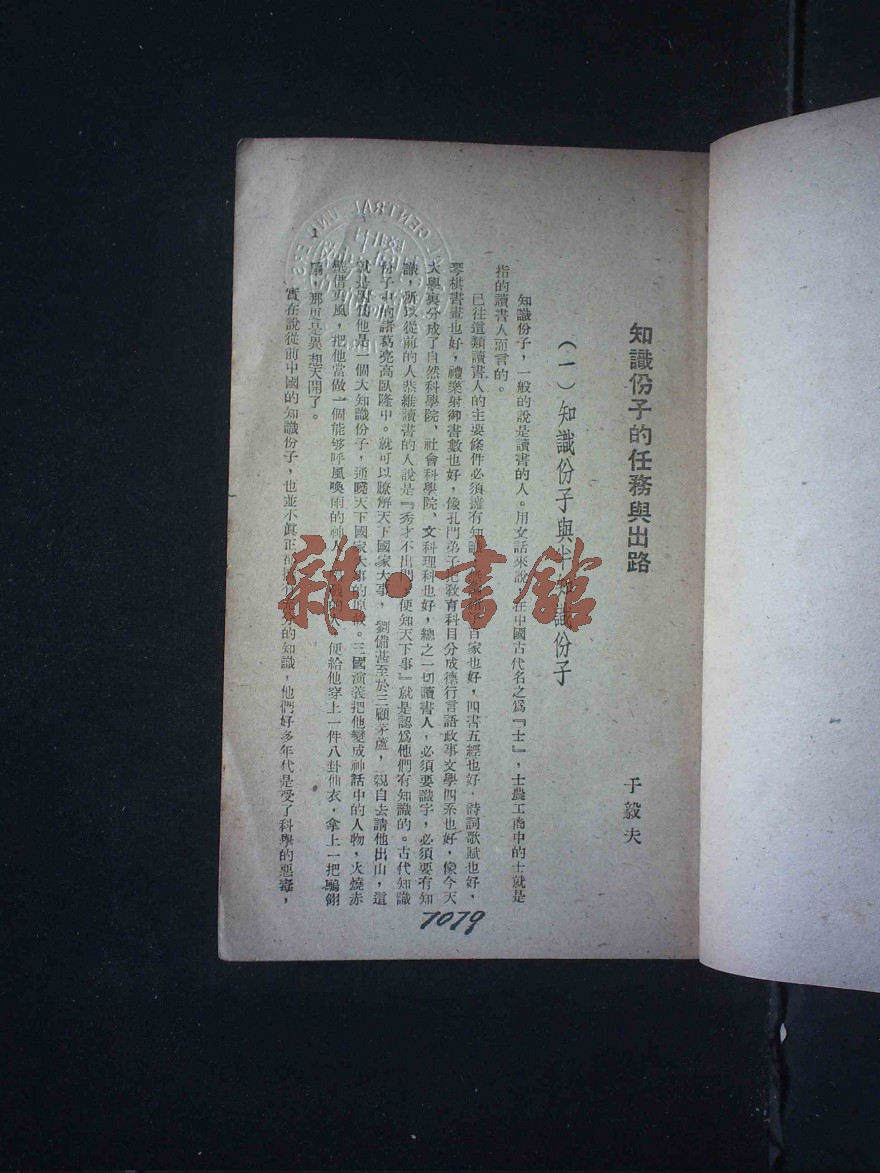 知識份子的任務與出路
于毅夫
（一）知識份子與半知識份子
知識份子，一般的說是讀書的人。用文話來說，在中國古代名之爲『士』，士農工商中的士就是
指的讀書人而言的。
已往這類讀書人的主要條件必須擁有知識，百家也好，四書五經也好，詩詞歌賦也好，
琴棋書畫也好，禮樂射御書數也好，像孔門弟子把教育科目分成德行言語政事文學四系也好，像今天
大學裏分成了自然科學院、社會科學院、文科理科也好，總之一切讀書人，必須要識字，必須要有知
識，所以從前的人恭維讀書的人說是『秀才不出門，便知天下事』就是認爲他們有知識的。古代知識
份子中的諸葛亮高臥隆中。就可以瞭解天下國家大事，劉備甚至於三顧茅蘆，親自去請他出山，這
就是因爲他是一個大知識份子，通曉天下國家大事的原故。三國演義把他變成神話中的人物，火燒赤
壁借東風，把他當做一個能够呼風喚雨的神人，的人，便給他穿上一件八卦仙衣，拿上一把鵰翎
扇，那更是異想天開了。
實在說從前中國的知識份子，也並不眞正的知識，他們好多年代是受了科學的惡毒，
7079
雜·書館
CENTRAL UNIVERS